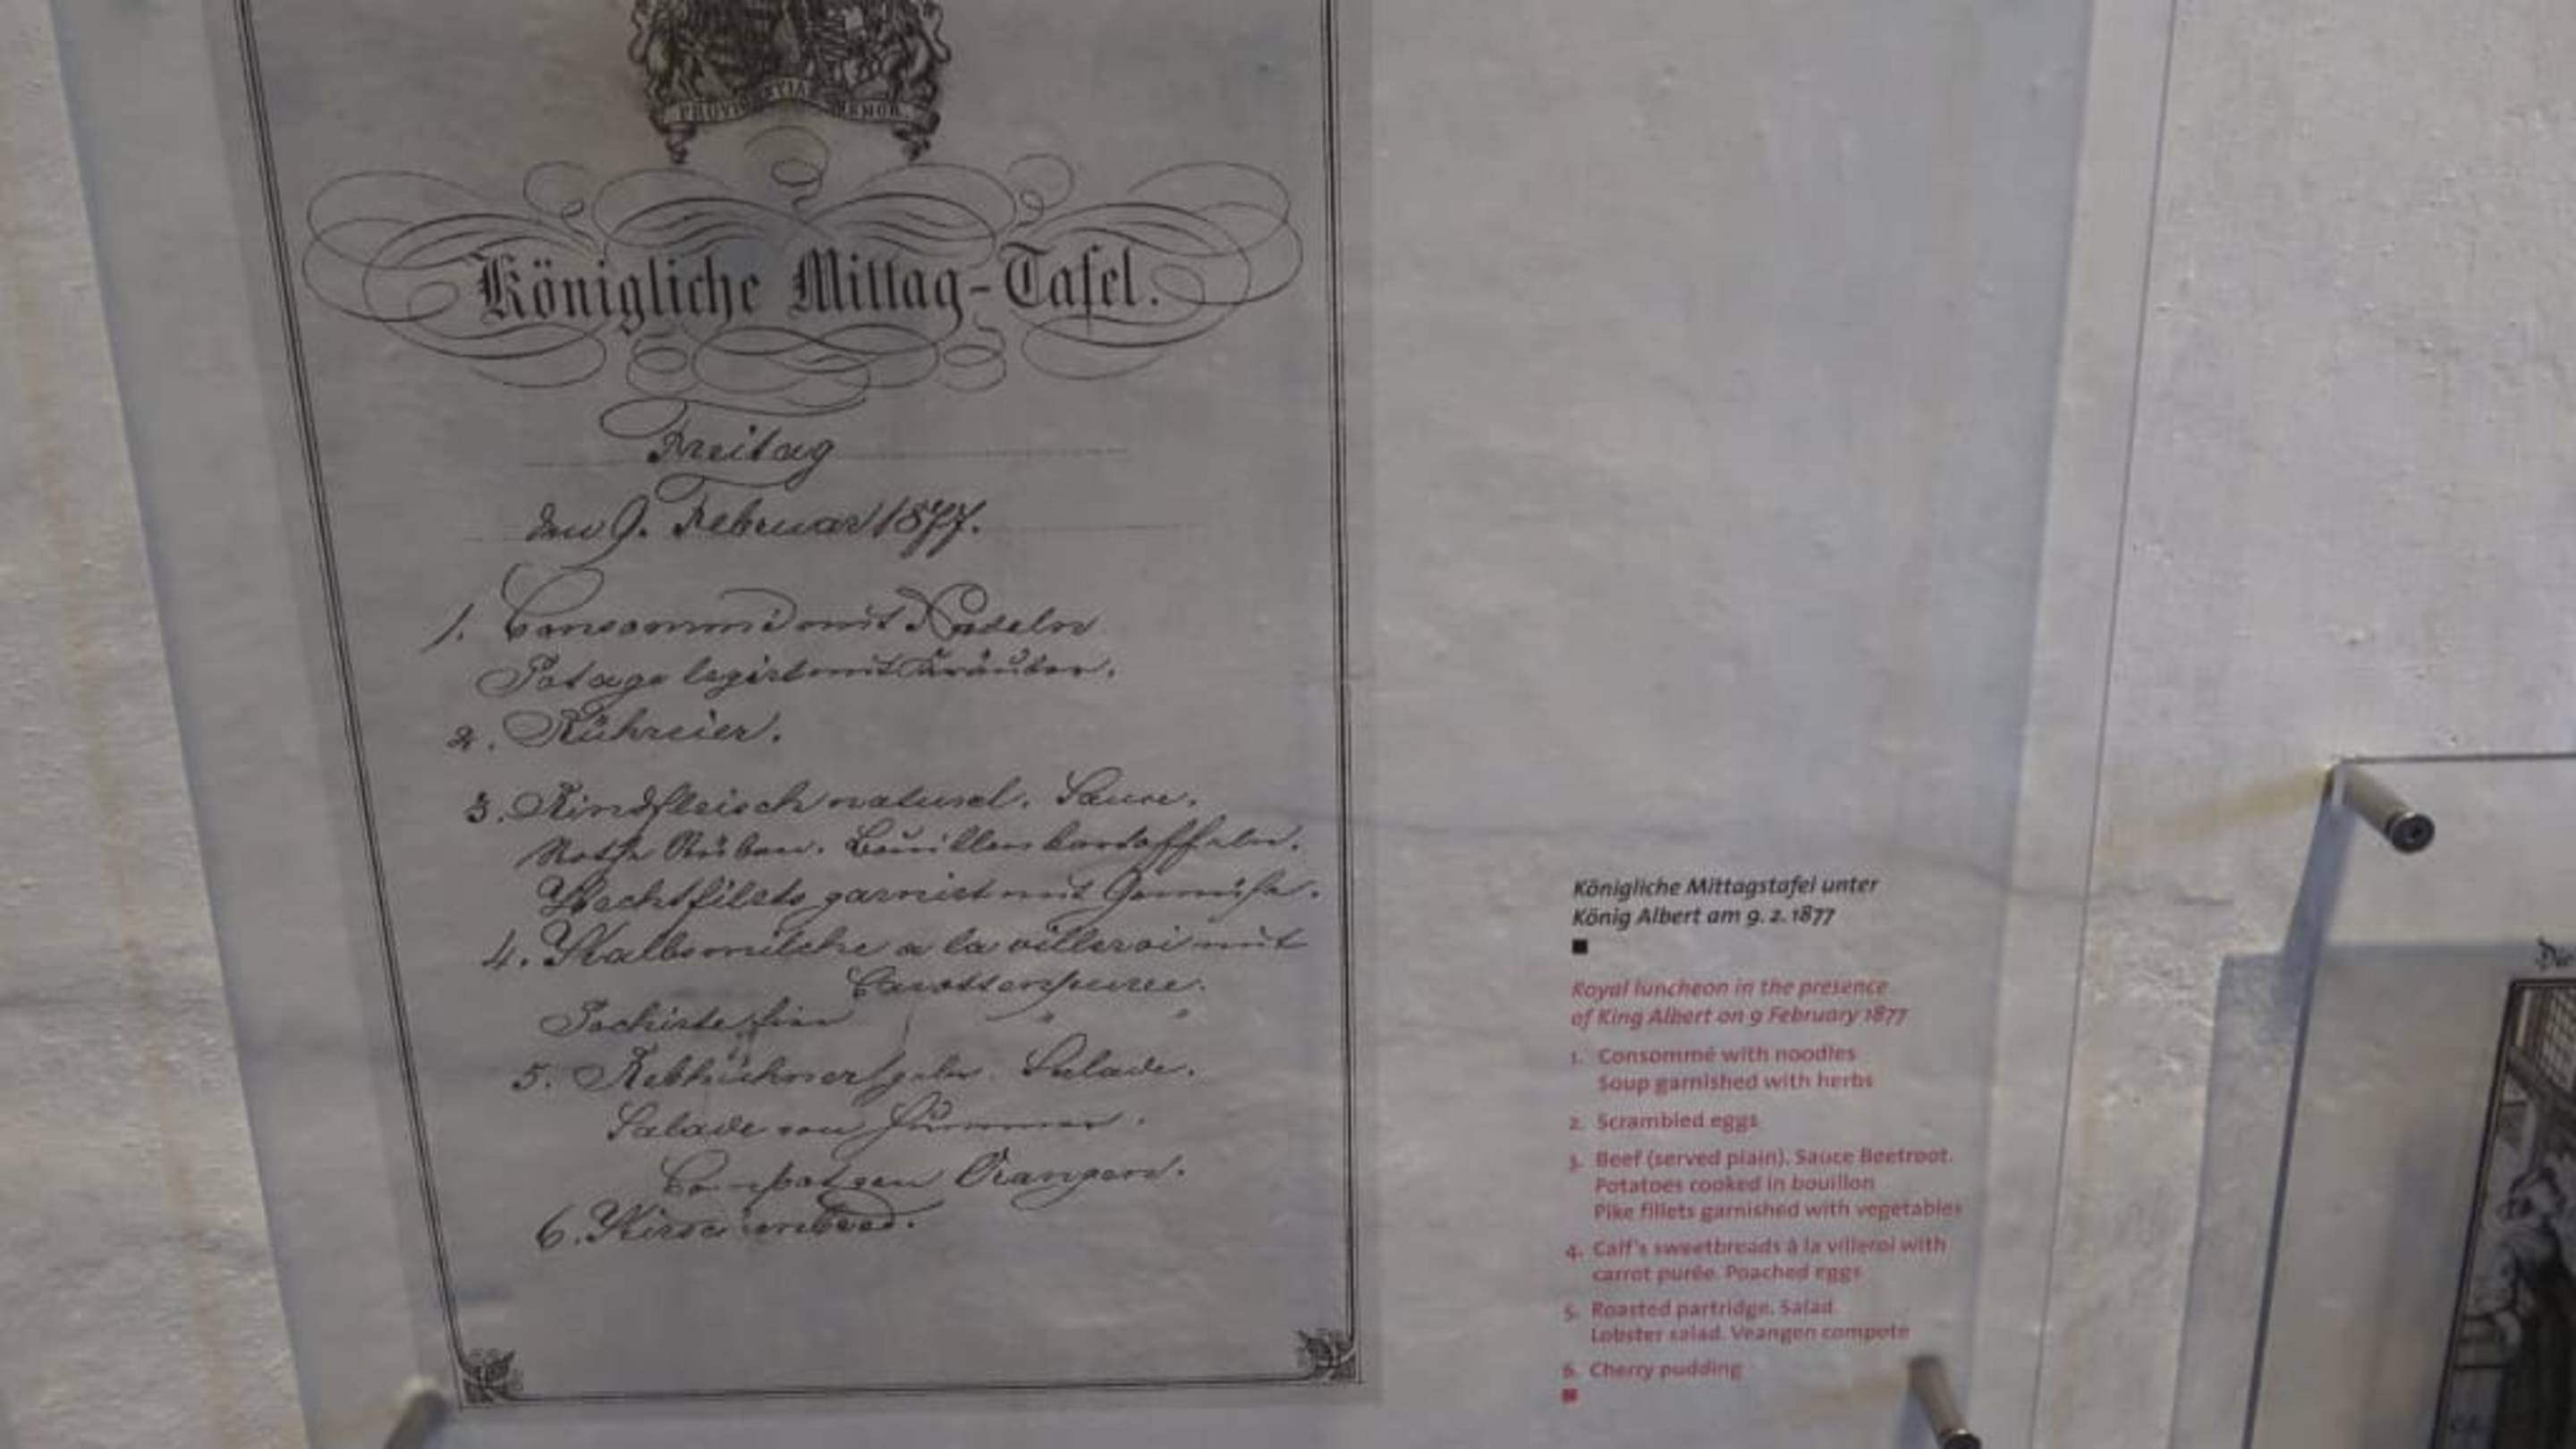 PROVIDENTIAE MEMOR
Königliche Mittag-Tafel.
Freitag
den 9. Februar 1877.
1. Consommé mit Nudeln
Potage legirt mit Kräuter.
2. Rühreier.
3. Rindfleisch naturel. Sauce.
Rothe Rüben. Bouillonkartoffeln.
Hechtfilets garnirt mit Gemüse.
4. Kalbsmilche a la villeroi mit
Carottenpuree.
Pochirte Eier " "
5. Rebhühner gebr. Salade.
Salade von Hummer.
Compot von Orangen.
6.
Königliche Mittagstafel unter
König Albert am 9. 2. 1877
Royal luncheon in the presence
of King Albert on 9 February 1877
1. Consommé with noodles
Soup garnished with herbs
2. Scrambled eggs
3. Beef (served plain). Sauce Beetroot.
Potatoes cooked in bouillon
Pike fillets garnished with vegetables
4. Calf's sweetbreads à la villeroi with
carrot purée. Poached eggs
5. Roasted partridge. Salad.
Lobster salad. Veangen compote
6. Cherry pudding
Die